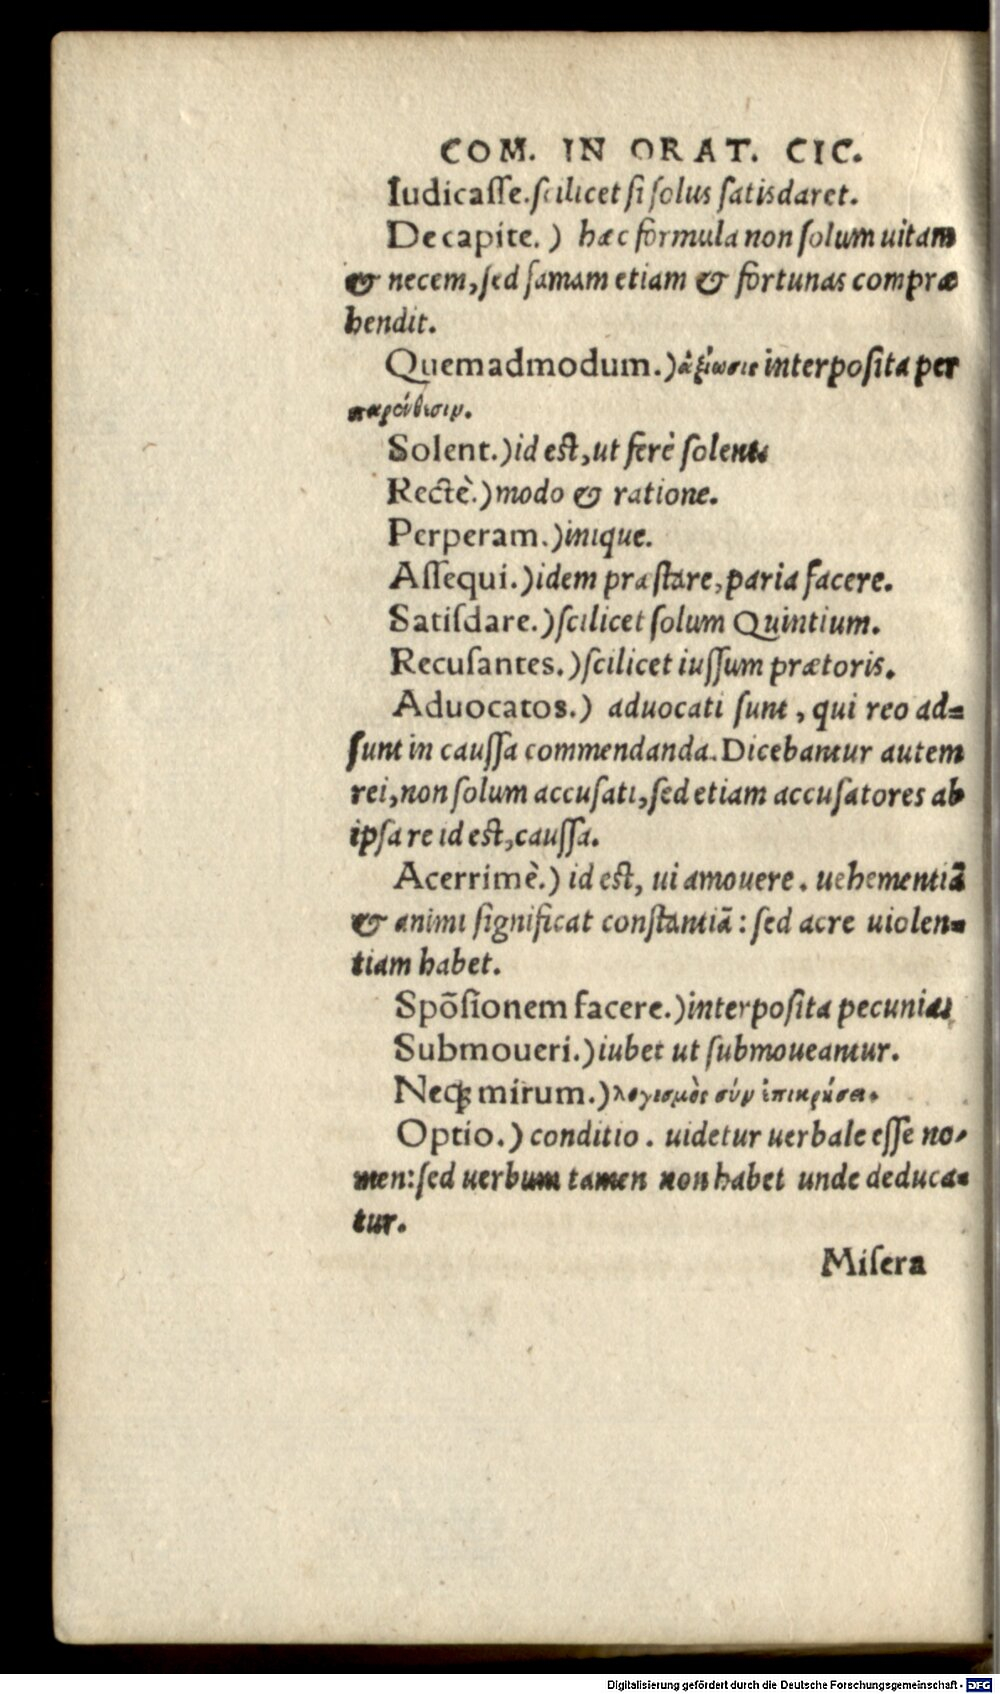 COM. IN ORAT. CIC.
Iudicaſſe.ſcilicet ſi ſolus ſatisdaret.
De capite. ) hæc formula non ſolum uitam
& necem, ſed famam etiam & fortunas compræ
hendit.
Quemadmodum.) ἀξίωσις interpoſita per
παρένθεσιν.
Solent.) id eſt, ut ferè ſolent.
Rectè.) modo & ratione.
Perperam.) inique.
Aſſequi.) idem præſtare, paria facere.
Satiſdare.) ſcilicet ſolum Quintium.
Recuſantes.) ſcilicet iuſſum prætoris.
Aduocatos.) aduocati ſunt, qui reo ad=
ſunt in cauſſa commendanda. Dicebantur autem
rei, non ſolum accuſati, ſed etiam accuſatores ab
ipſa re id eſt, cauſſa.
Acerrimè.) id eſt, ui amouere. uehementiã
& animi ſignificat conſtantiã: ſed acre uiolen=
tiam habet.
Spõſionem facere.) interpoſita pecunia.
Submoueri.) iubet ut ſubmoueantur.
Neqꝫ mirum.) λογισμὸς σὺν ἐπικρίσει.
Optio.) conditio. uidetur uerbale eſſe no-
men: ſed uerbum tamen non habet unde deduca=
tur.
Miſera
Digitalisierung gefördert durch die Deutsche Forschungsgemeinschaft - DFG